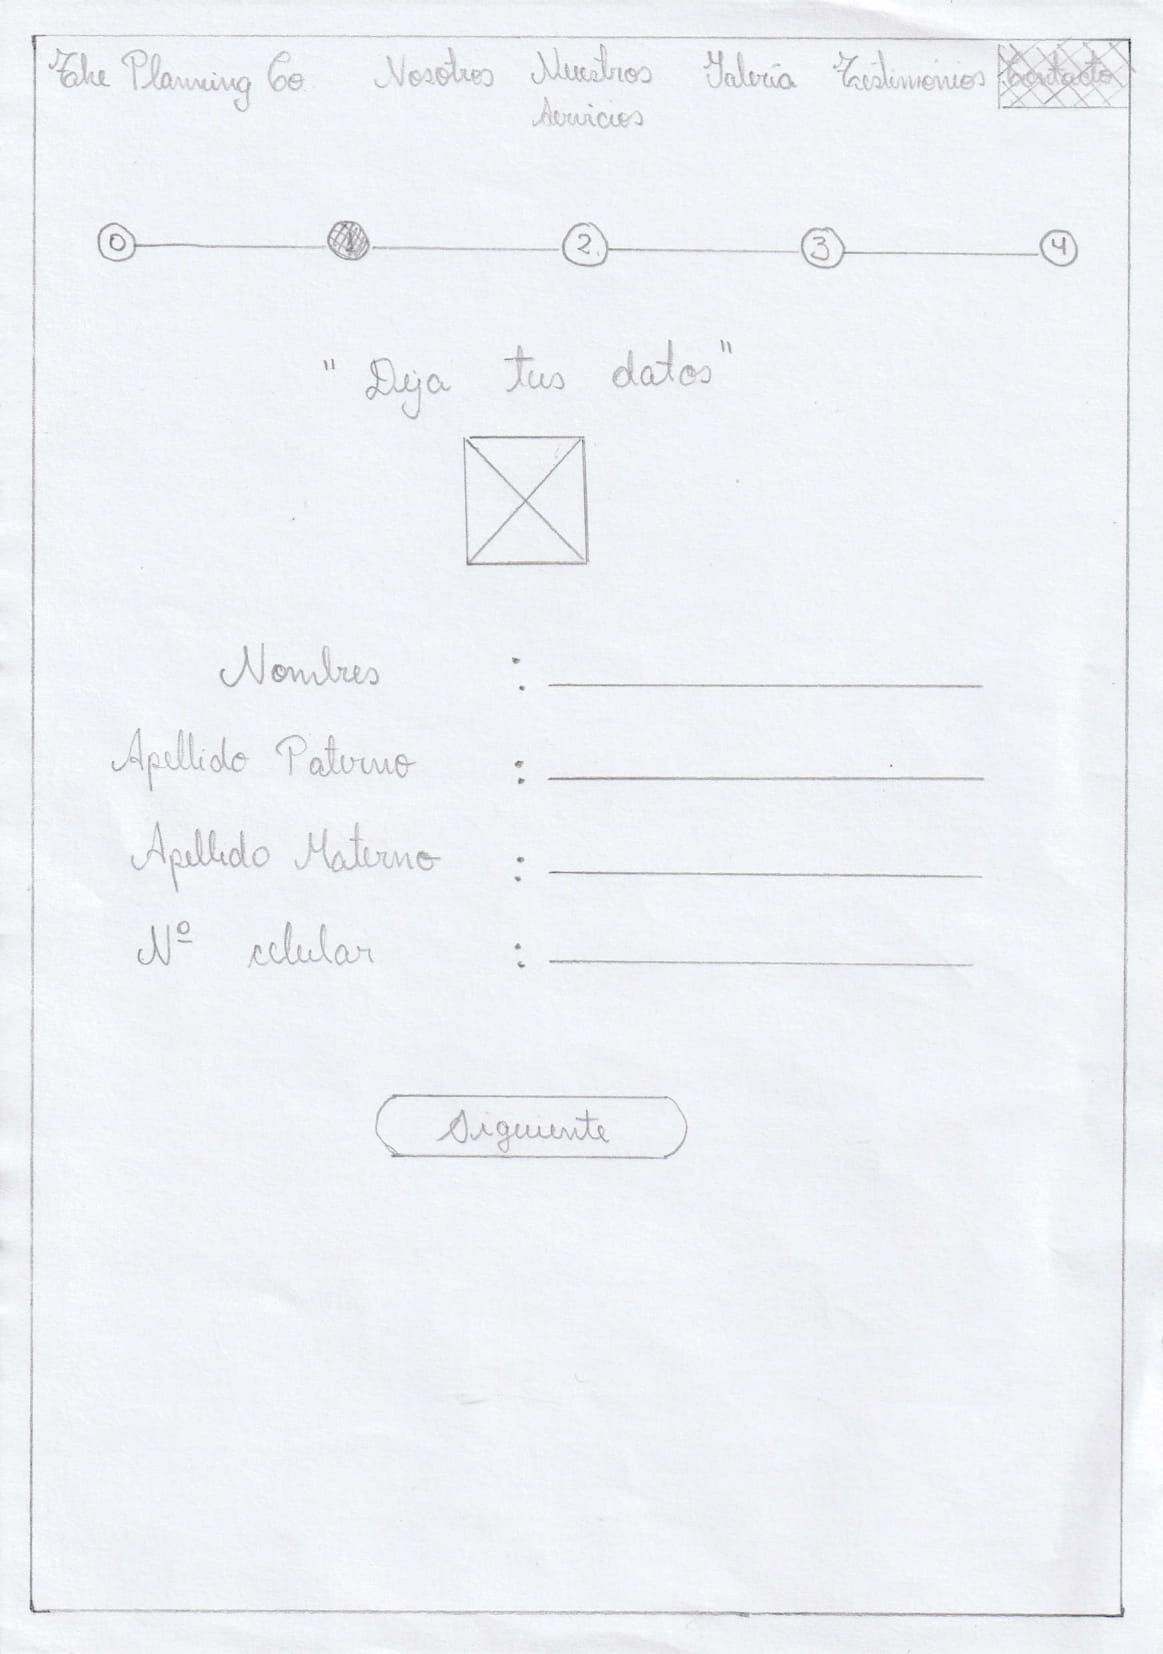 The Planning Co Nosotros Nuestros Servicios Galería Testimonios Contacto
0 1 2 3 4
"Deja tus datos"
Nombres :
Apellido Paterno :
Apellido Materno :
Nº celular :
Siguiente